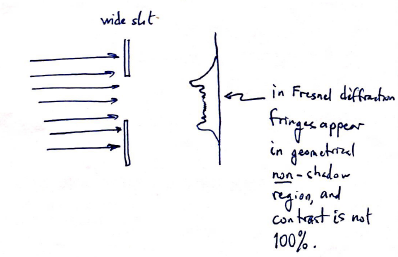 wide slit
in Fresnel diffraction
fringes appear
in geometrical
non-shadow
region, and
contrast is not
100%.